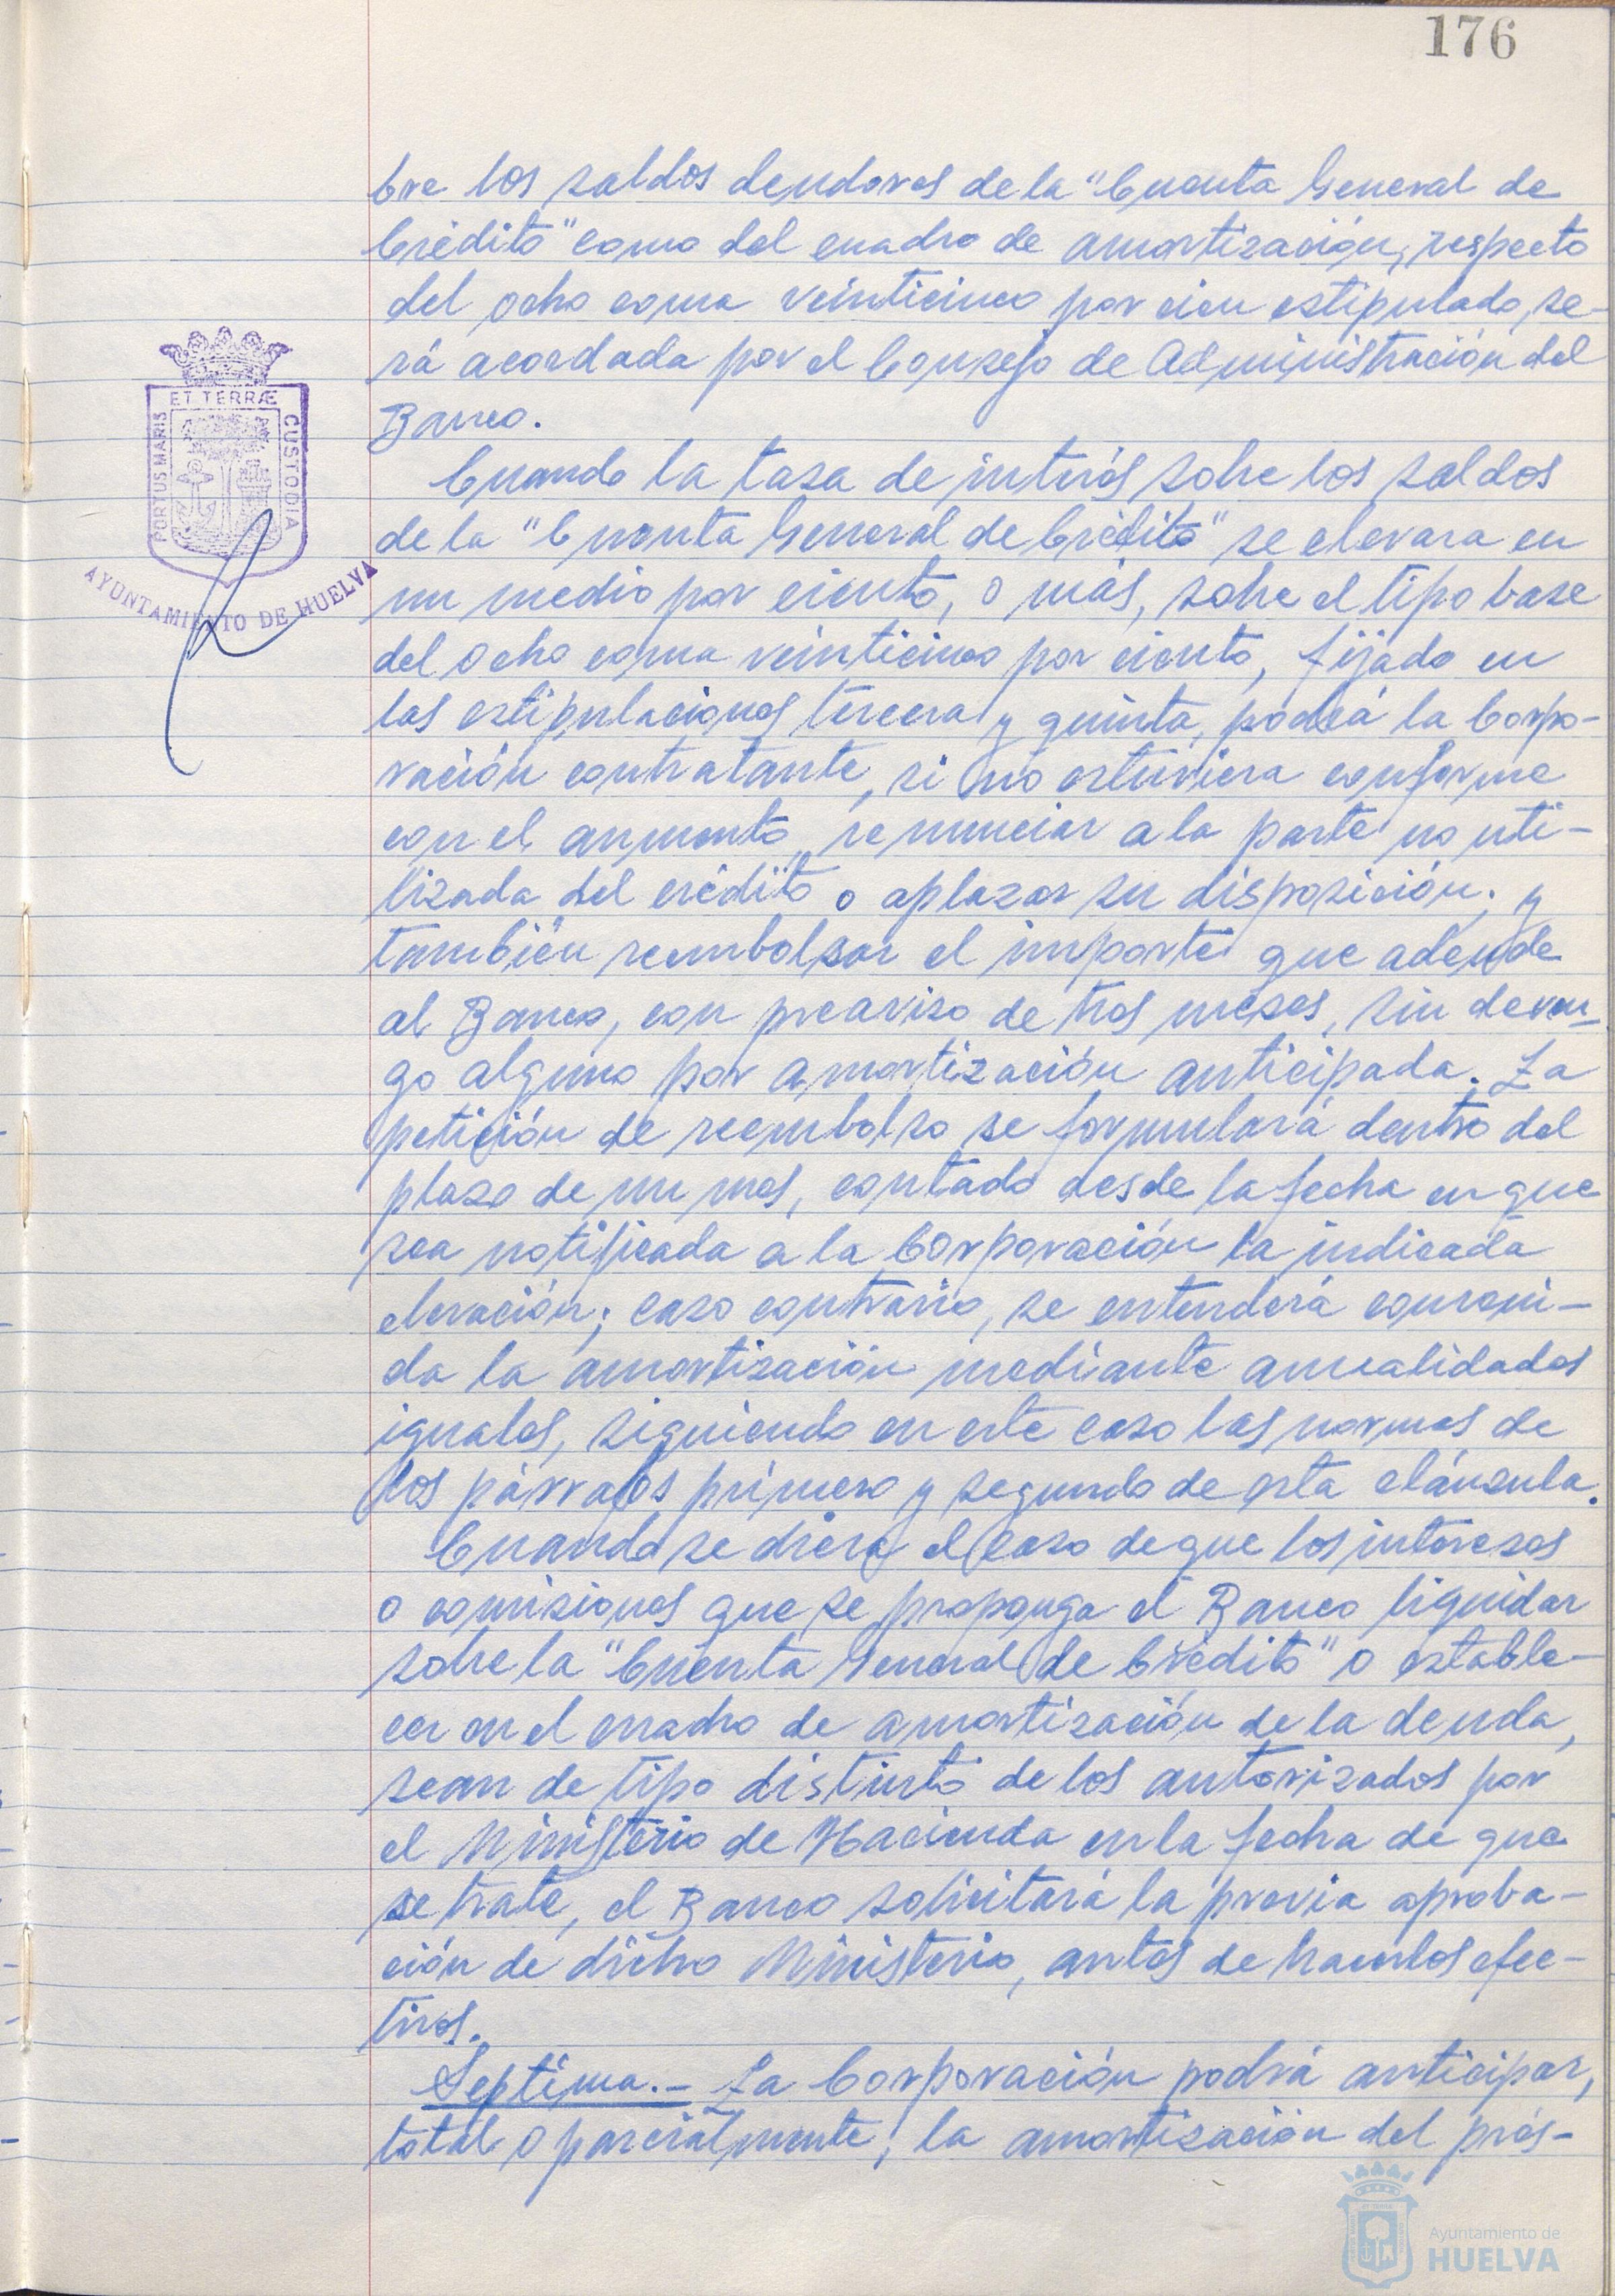 176
bre los saldos deudores de la "Cuenta General de
Crédito" como del cuadro de amortización, respecto
del ocho coma veinticinco por cien estipulado, se-
rá acordada por el Consejo de Administración del
Banco.
Cuando la tasa de interés sobre los saldos
de la "Cuenta General de Crédito" se elevara en
un medio por ciento, o más, sobre el tipo base
del ocho coma veinticinco por ciento, fijado en
las estipulaciones tercera y quinta, podrá la Corpo-
ración contratante, si no estuviera conforme
con el aumento, renunciar a la parte no uti-
lizada del crédito o aplazar su disposición; y
también reembolsar el importe que adeude
al Banco, con preaviso de tres meses, sin deven-
go alguno por amortización anticipada. La
petición de reembolso se formulará dentro del
plazo de un mes, contado desde la fecha en que
sea notificada a la Corporación la indicada
elevación; caso contrario, se entenderá conveni-
da la amortización mediante anualidades
iguales, siguiendo en este caso las normas de
los párrafos primero y segundo de esta cláusula.
Cuando se diera el caso de que los intereses
o comisiones que se proponga el Banco liquidar
sobre la "Cuenta General de Crédito" o estable-
cer en el cuadro de amortización de la deuda,
sean de tipo distinto de los autorizados por
el Ministerio de Hacienda en la fecha de que
se trate, el Banco solicitará la previa aproba-
ción de dicho Ministerio, antes de hacerlos efec-
tivos.
Septima.- La Corporación podrá anticipar,
total o parcialmente, la amortización del prés-
PORTUS MARIS
ET TERRÆ
CUSTODIA
AYUNTAMIENTO DE HUELVA
Ayuntamiento de
HUELVA